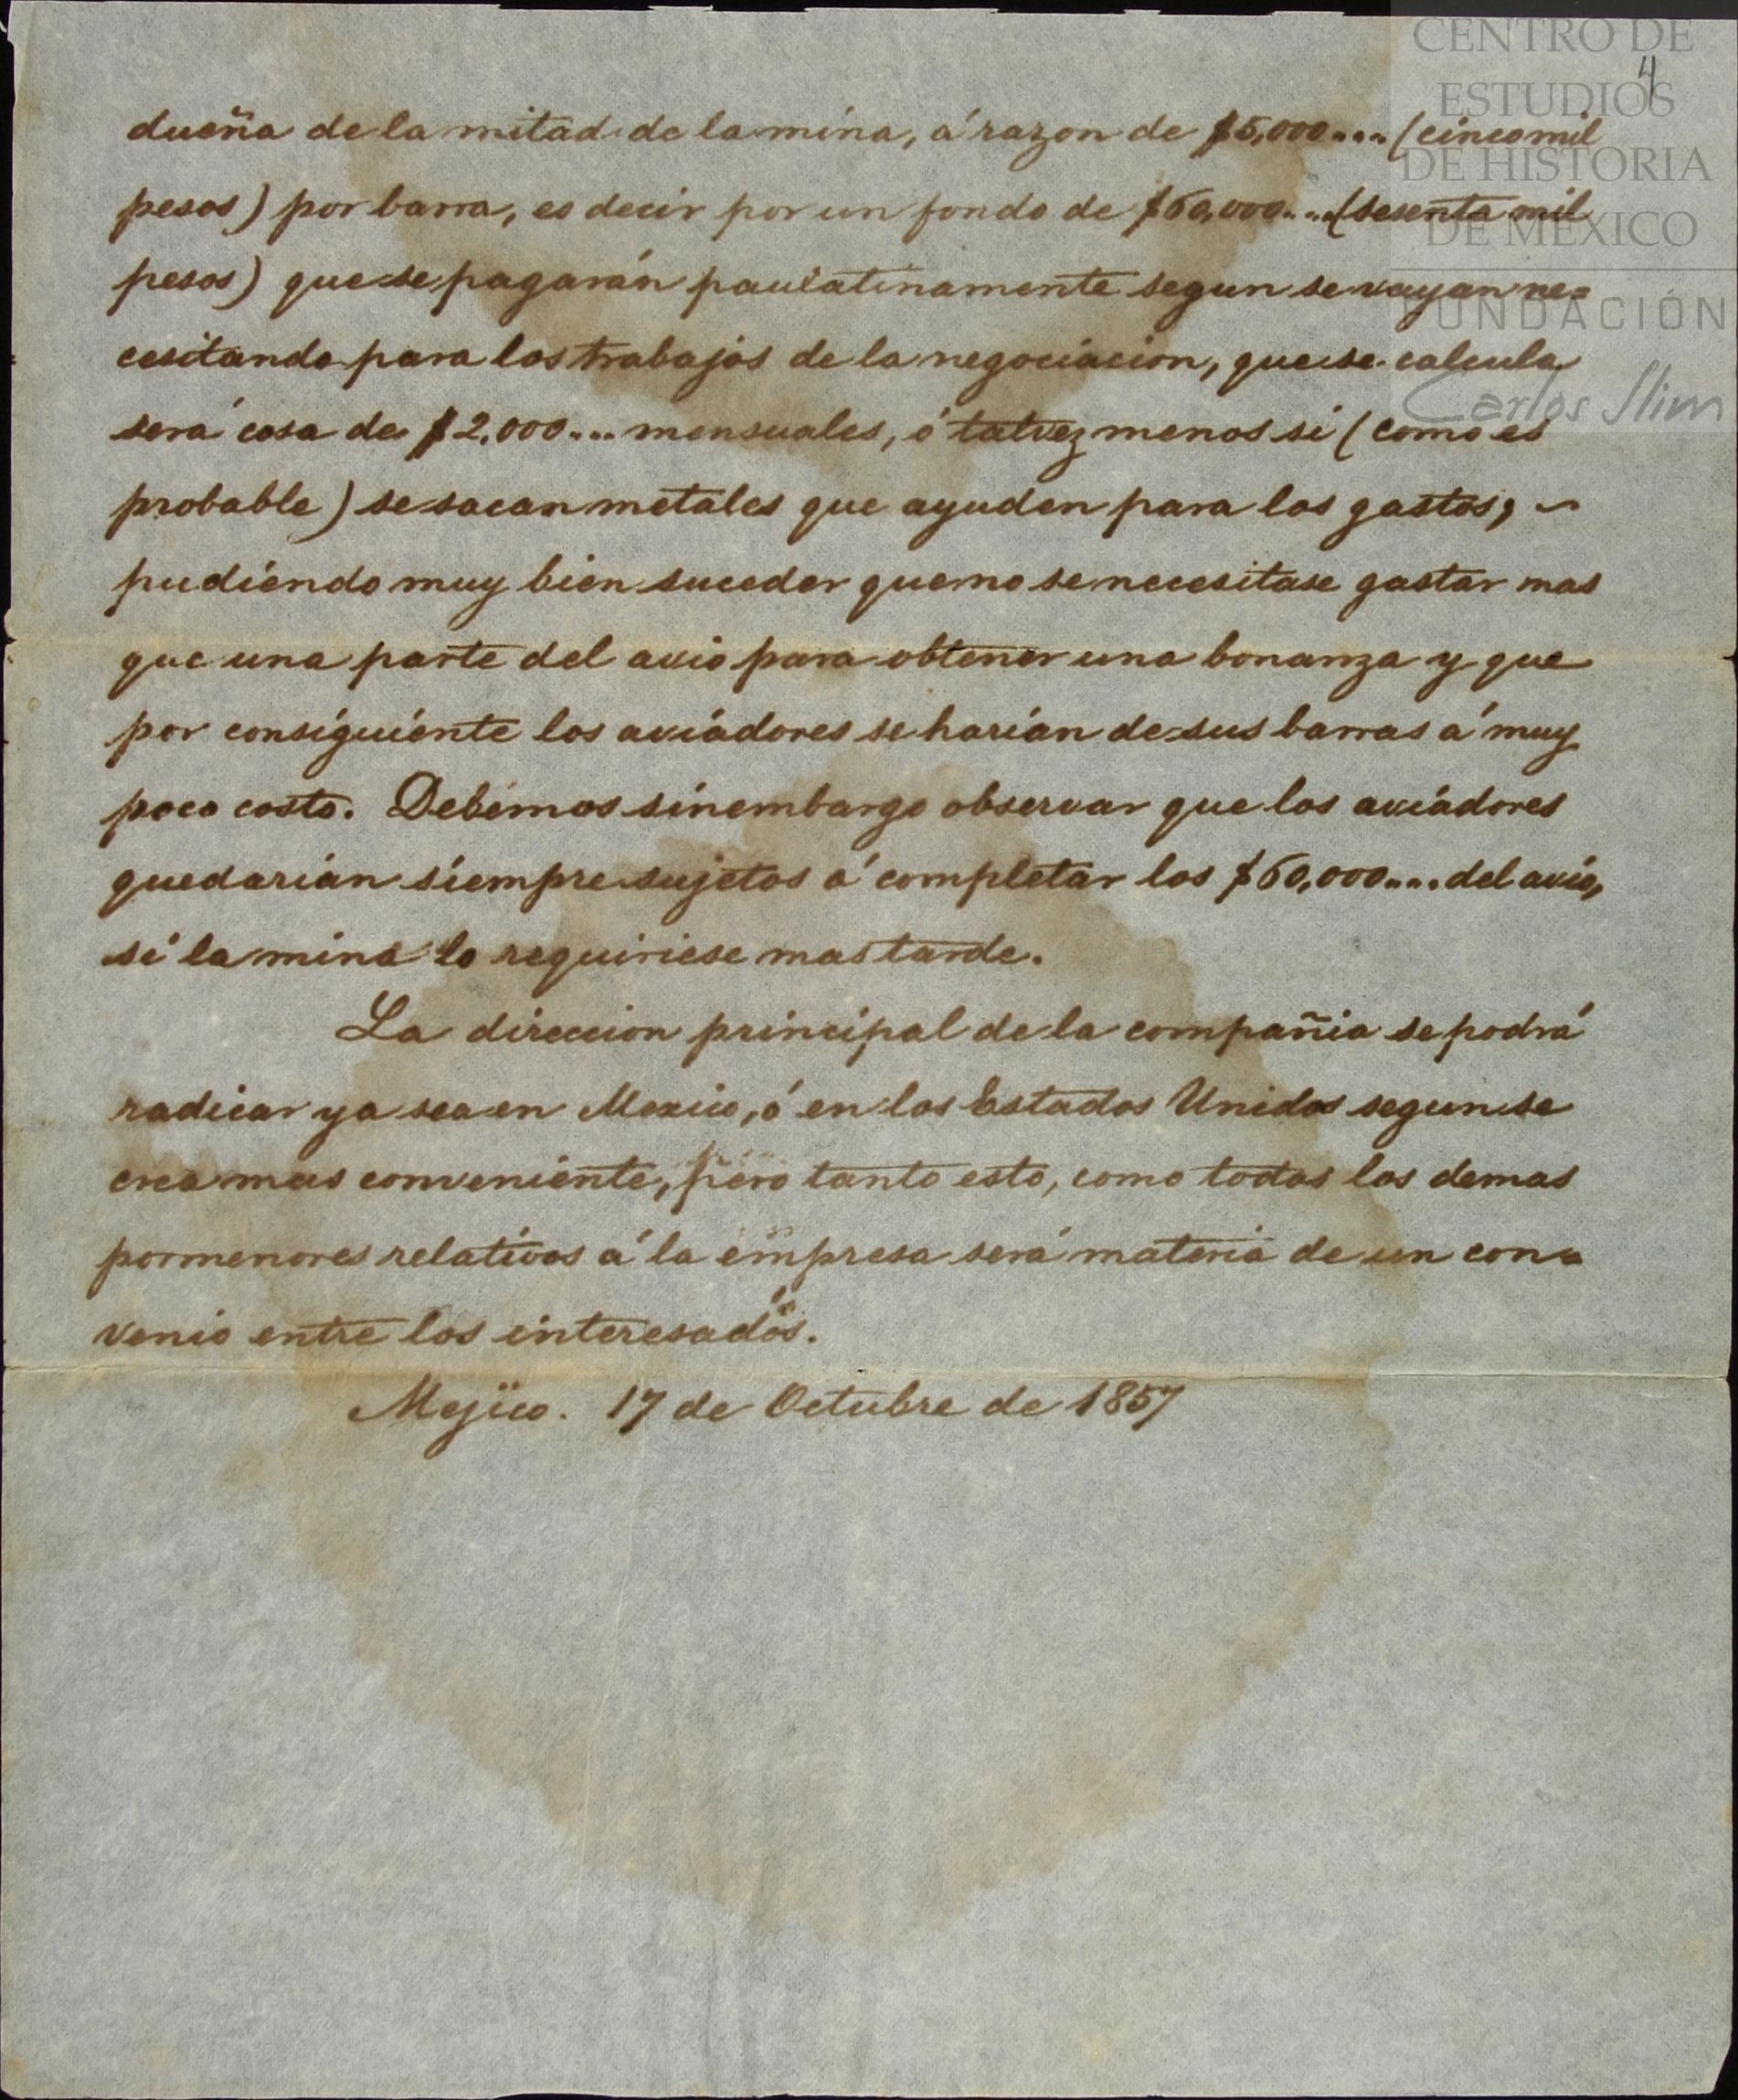 CENTRO DE
ESTUDIOS
DE HISTORIA
DE MÉXICO
FUNDACIÓN
Carlos Slim
4
dueña de la mitad de la mina, á razon de $5,000.... (cinco mil
pesos) por barra, es decir por un fondo de $60,000.... (sesenta mil
pesos) que se pagarán paulatinamente segun se vayan ne=
cesitando para los trabajos de la negociacion, que se calcula
será cosa de $2,000.... mensuales, ó talvez menos si (como es
probable) se sacan metales que ayuden para los gastos, ~
pudiendo muy bien suceder que no se necesitase gastar mas
que una parte del avio para obtener una bonanza y que
por consiguiente los aviadores se harian de sus barras á muy
poco costo. Debemos sinembargo observar que los aviadores
quedarian siempre sujetos á completar los $60,000.... del avio,
si la mina lo requiriese mas tarde.
La direccion principal de la compañia se podrá
radicar ya sea en Mexico, ó en los Estados Unidos segun se
crea mas conveniente, pero tanto esto, como todos los demas
pormenores relativos á la empresa será materia de un con=
venio entre los interesados.
Mejico. 17 de Octubre de 1857